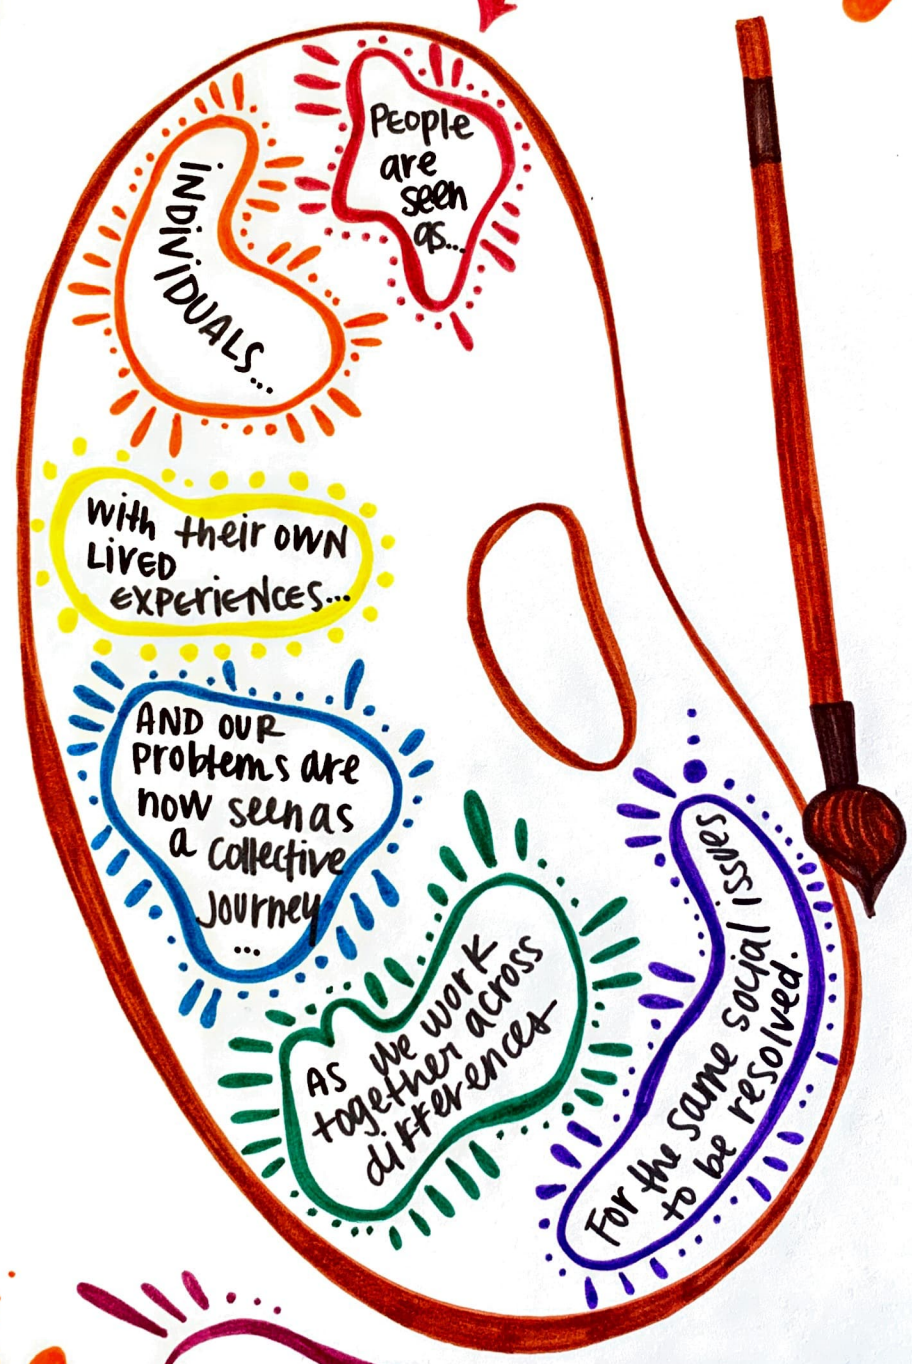 PEOPLE
are
seen
as...
INDIVIDUALS...
With their OWN
LIVED
EXPERIENCES...
AND OUR
problems are
now seen as
a collective
journey
...
AS We work
together across
differences
For the same social issues
to be resolved.